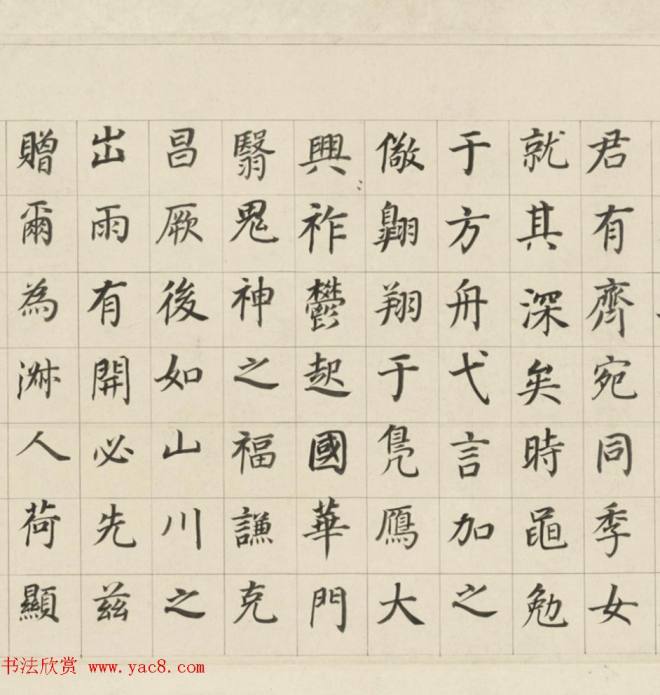 君有齊宛同季女
就其深矣時黽勉
于方舟弋言加之
儆翺翔于鳧鴈大
興祚鬱起國華門
翳鬼神之福謙克
昌厥後如山川之
出雨有開必先茲
贈爾為淑人荷顯
书法欣赏 www.yac8.com